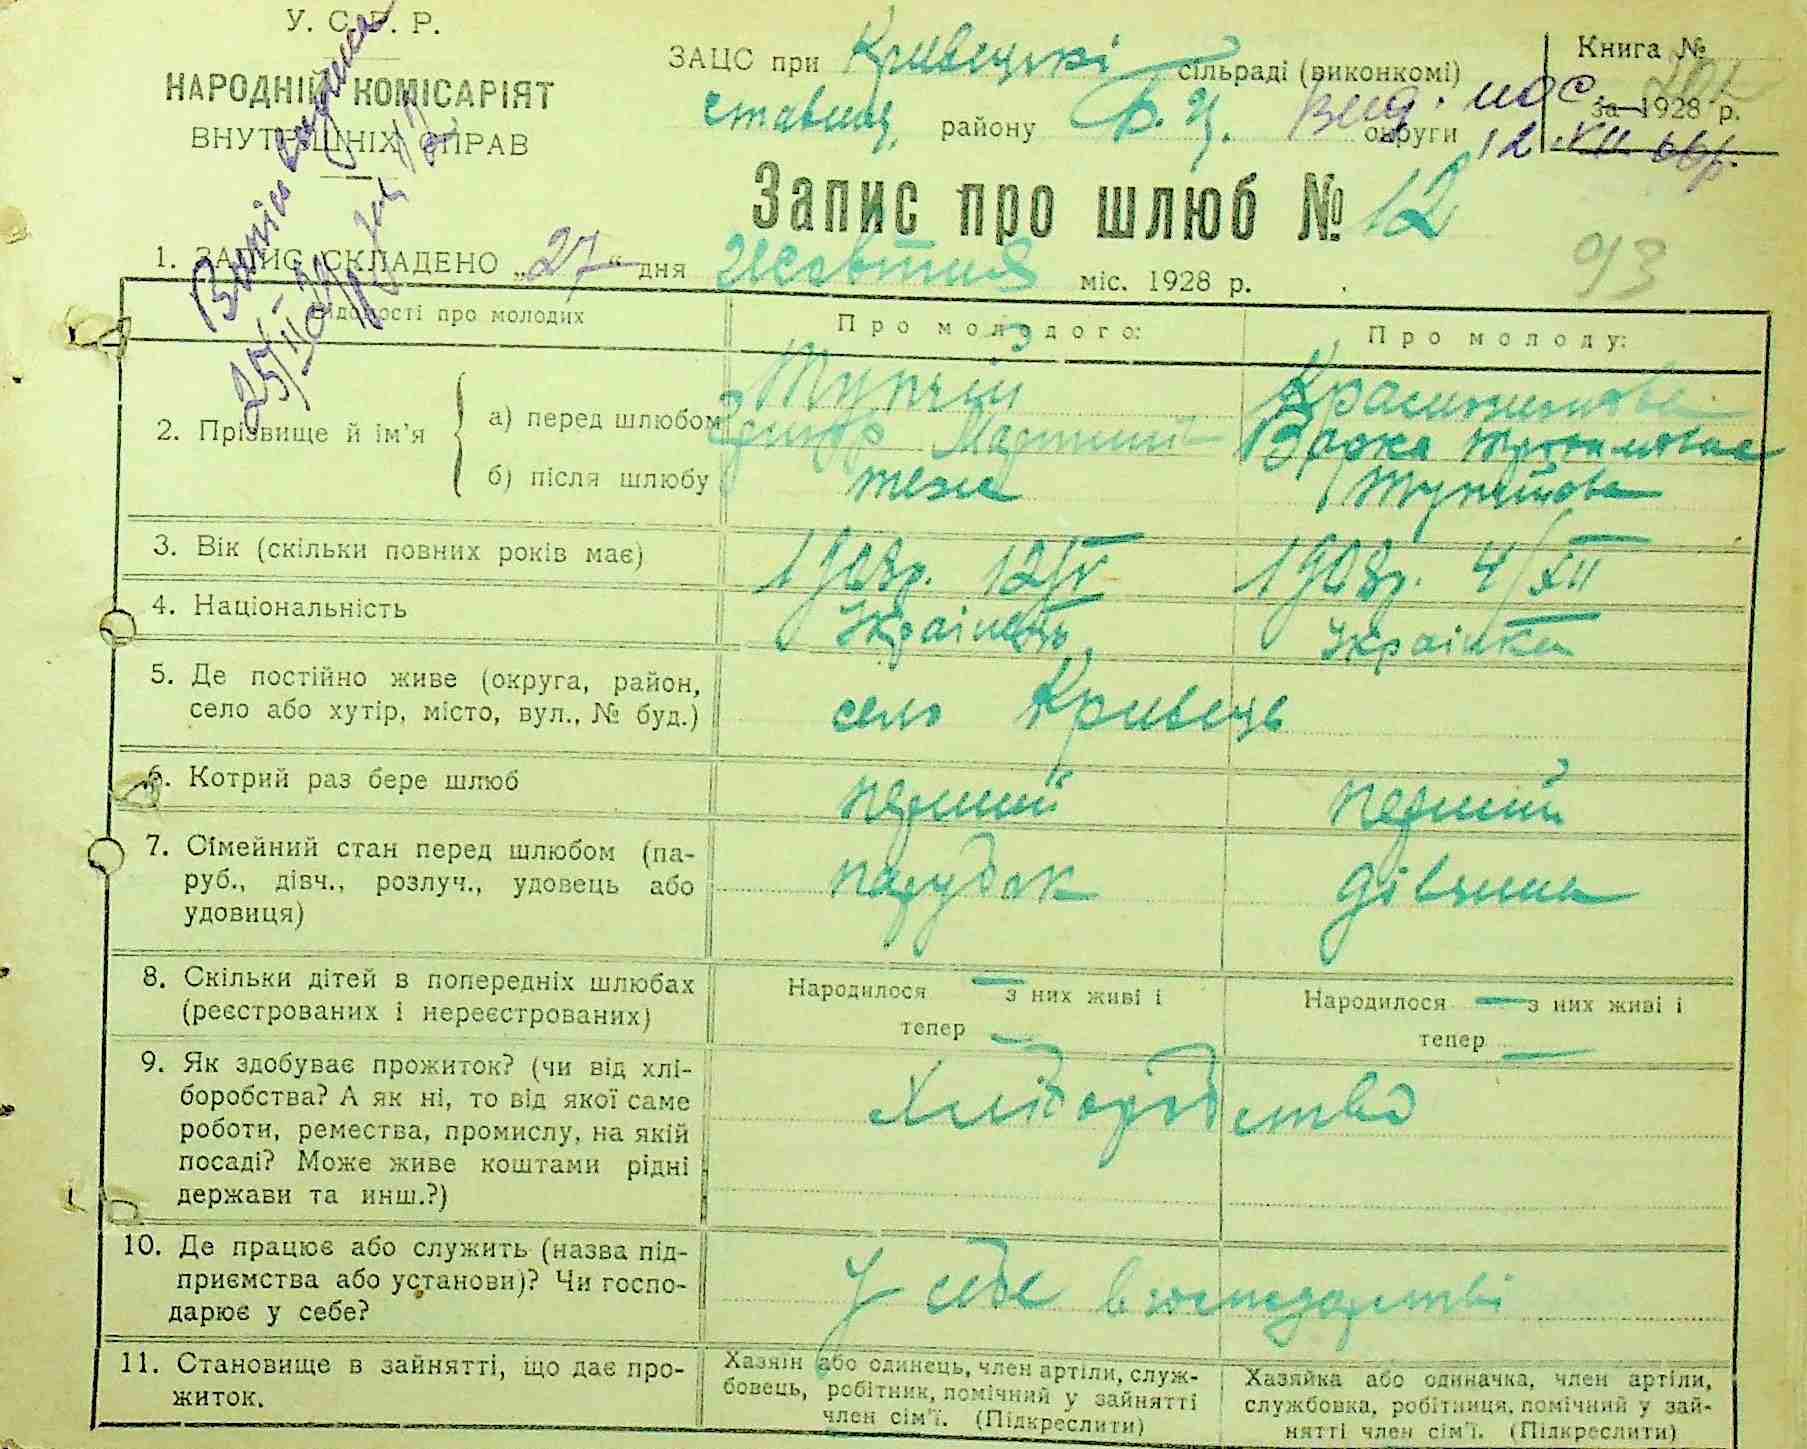 У. С. Р. Р.
НАРОДНІЙ КОМІСАРІЯТ
ВНУТРІШНІХ СПРАВ
ЗАЦС при Кривецькі сільраді (виконкомі)
ставищ. району Б. Ц. округи
Книга №
за 1928 р.
12 XII
Запис про шлюб № 12
93
1. ЗАПИС СКЛАДЕНО „27“ дня жовтня міс. 1928 р.
Відомості про молодих
Про молодого:
Про молоду:
2. Прізвище й ім'я
а) перед шлюбом
Тупчій
Григор Мартинів
Варка Трохимовна
б) після шлюбу
теж
Тупчійова
3. Вік (скільки повних років має)
1908р. 12/V
1908р. 4/XII
4. Національність
Українець
Українка
5. Де постійно живе (округа, район,
село або хутір, місто, вул., № буд.)
село Кривець
6. Котрий раз бере шлюб
перший
перший
7. Сімейний стан перед шлюбом (па-
руб., дівч., розлуч., удовець або
удовиця)
парубок
дівчина
8. Скільки дітей в попередніх шлюбах
(реєстрованих і нереєстрованих)
Народилося — з них живі і
тепер —
Народилося — з них живі і
тепер —
9. Як здобуває прожиток? (чи від хлі-
боробства? А як ні, то від якої саме
роботи, ремества, промислу, на якій
посаді? Може живе коштами рідні
держави та инш.?)
Хліборобство
10. Де працює або служить (назва під-
приємства або установи)? Чи госпо-
дарює у себе?
У себе в господарстві
11. Становище в зайнятті, що дає про-
житок.
Хазяїн або одинець, член артіли, служ-
бовець, робітник, помічний у зайнятті
член сім'ї. (Підкреслити)
Хазяйка або одиначка, член артіли,
службовка, робітниця, помічний у зай-
нятті член сім'ї. (Підкреслити)